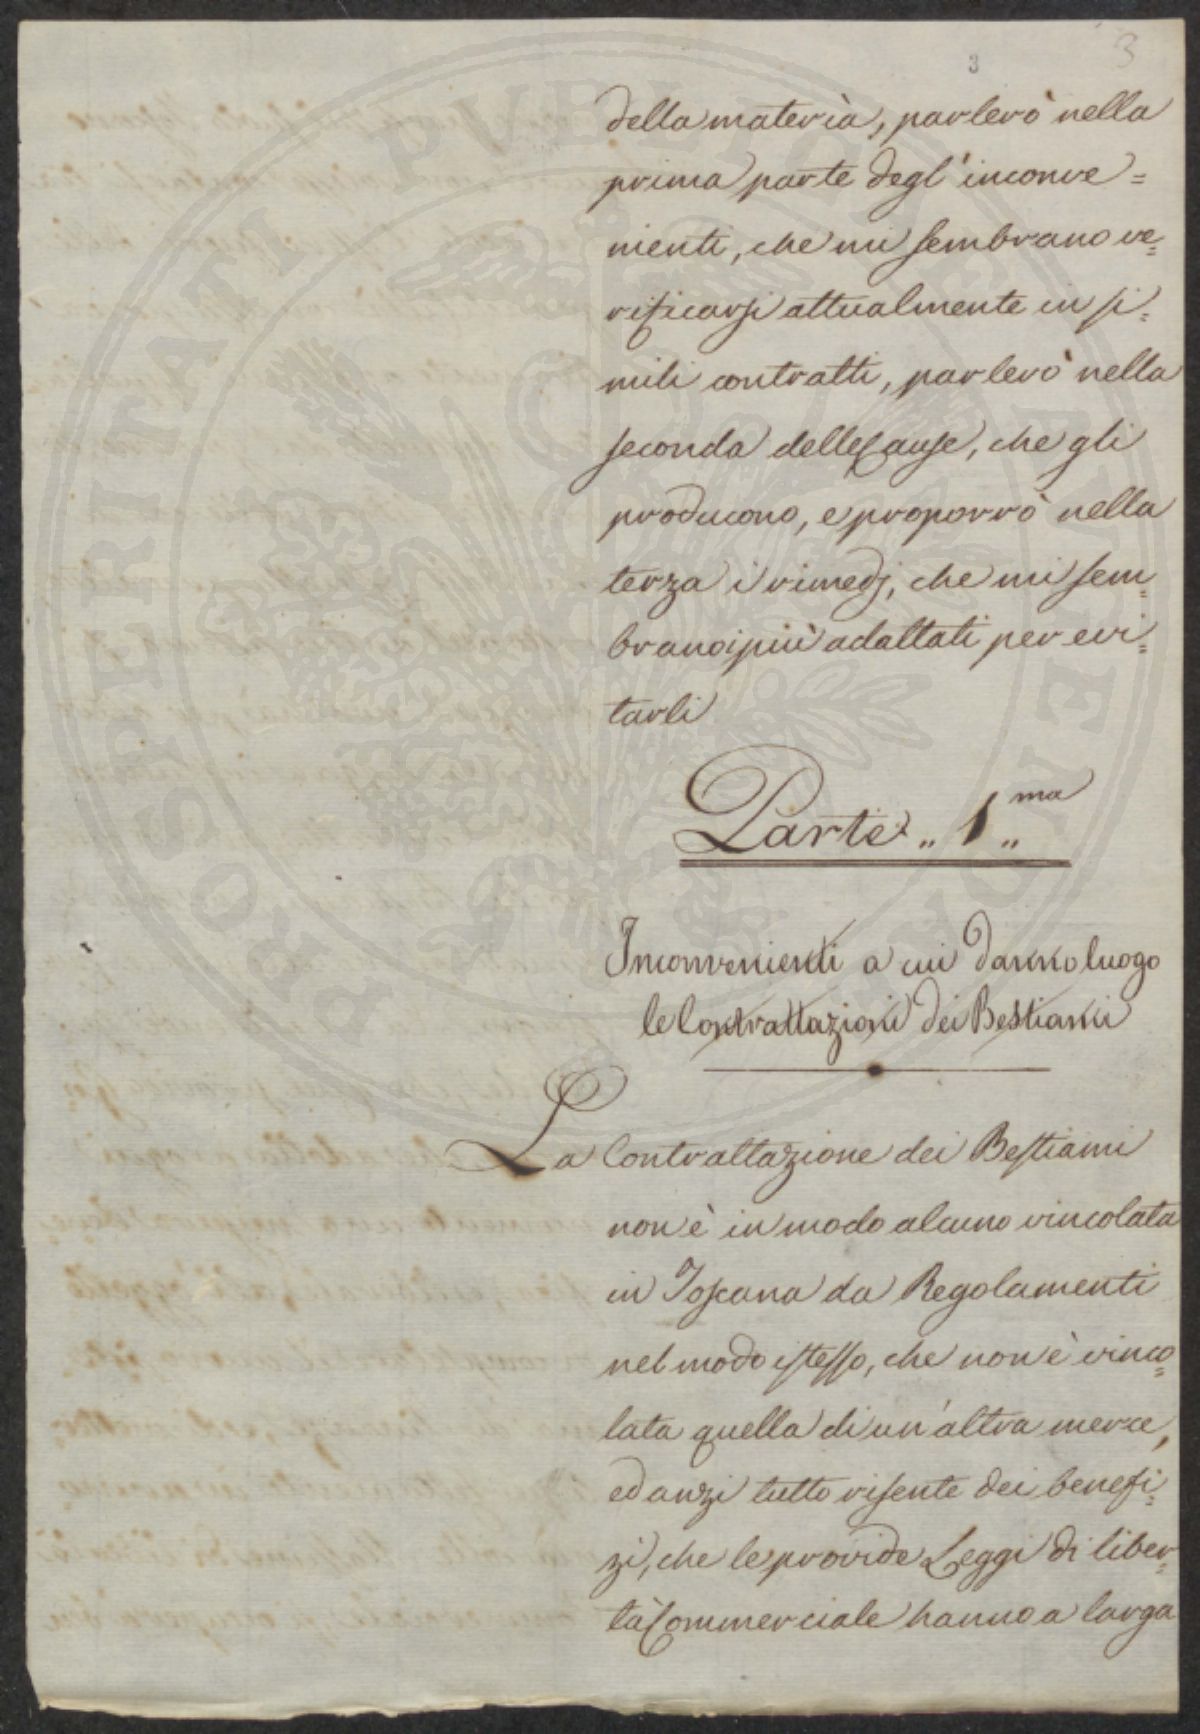 3
3
della materia, parlerò nella
prima parte degl'inconve=
nienti, che mi sembrano ve=
rificarsi attualmente in si=
mili contratti, parlerò nella
seconda delle Cause, che gli
producono, e proporrò nella
terza i rimedj, che mi sem=
brano i più adattati per evi=
tarli
Parte „ 1„ma
Inconvenienti a cui danno luogo
le Contrattazioni dei Bestiami
La Contrattazione dei Bestiami
non è in modo alcuno vincolata
in Toscana da Regolamenti
nel modo istesso, che non è vinco=
lata quella di un'altra merce,
ed anzi tutto risente dei benefi=
zi, che le provide Leggi di liber=
tà Commerciale hanno a larga
PROSPERITATI PVBLICAE AVGENDAE